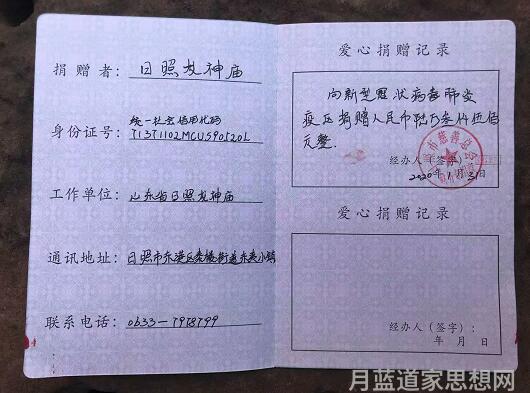 捐赠者：日照龙神庙
统一社会信用代码
身份证号：71371102MCU590520L
工作单位：山东省日照龙神庙
通讯地址：日照市东港区秦楼街道东夷小镇
联系电话：0633-7978799
爱心捐赠记录
向新型冠状病毒肺炎
疫区捐赠人民币陆万条仟伍佰
元整.
经办人（签字）：
2020年1月31日
爱心捐赠记录
经办人（签字）：
年 月 日
月蓝道家思想网